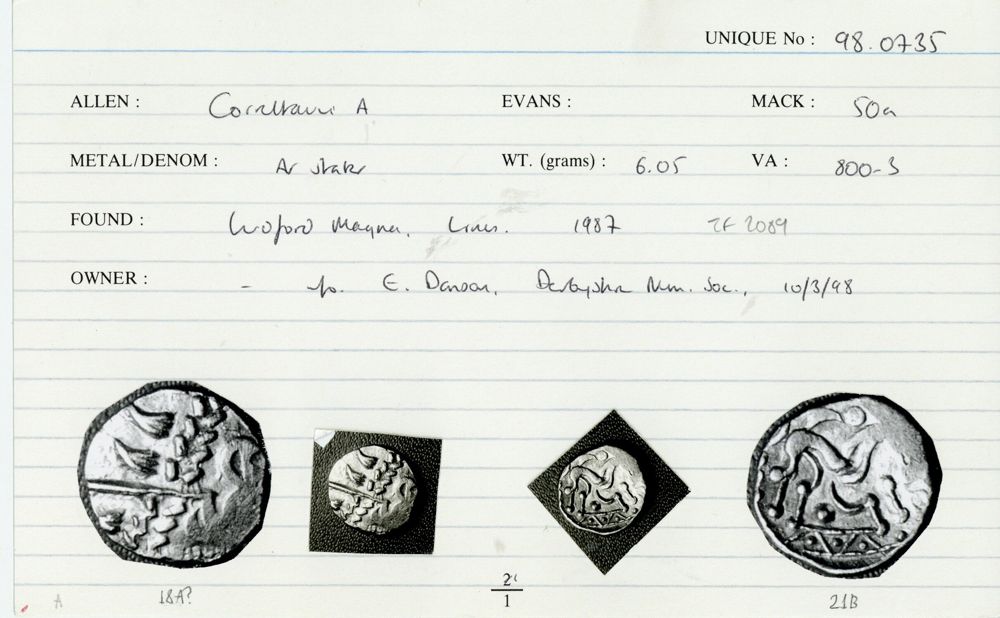 UNIQUE No : 98.0735
ALLEN : Corieltauvi A EVANS : MACK : 50a
METAL/DENOM : Av stater WT. (grams) : 6.05 VA : 800-3
FOUND : Magna, Lincs. 1987 2089
OWNER : - E. Danson, Derbyshire Num. Soc., 10/3/98
A 18A? 2 21B
1